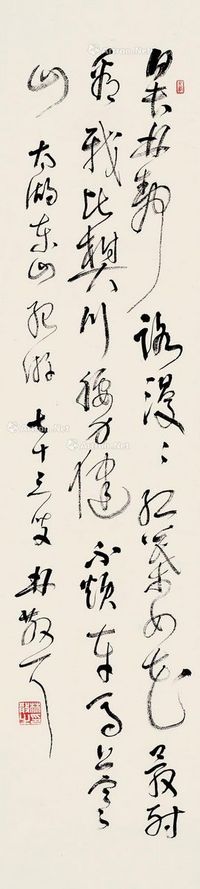 路漫漫紅葉如花最耐
看我比樊川腰力健不煩車馬上寒
山 太湖東山紀游 七十三叟林散耳